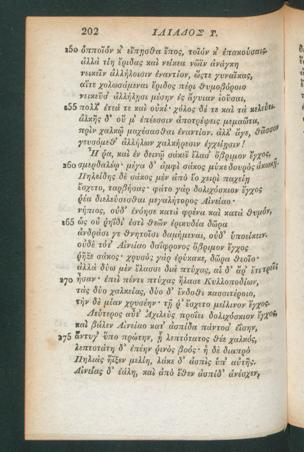 202 ΙΛΙΑΔΟΣ Υ.
250 ὁπποῖόν κ' εἴπῃσθα ἔπος, τοῖόν κ' ἐπακούσαις.
ἀλλὰ τίη ἔριδας καὶ νείκεα νῶϊν ἀνάγκη
νεικεῖν ἀλλήλοισιν ἐναντίον, ὥςτε γυναῖκας,
αἵτε χολωσάμεναι ἔριδος πέρι θυμοβόροιο
νεικεῦσ' ἀλλήλῃσι μέσην ἐς ἄγυιαν ἰοῦσαι,
255 πολλ' ἐτεά τε καὶ οὐκί· χόλος δέ τε καὶ τὰ κελεύει.
ἀλκῆς δ' οὔ μ' ἐπέεσσιν ἀποτρέψεις μεμαῶτα,
πρὶν χαλκῷ μαχέσασθαι ἐναντίον. ἀλλ' ἄγε, θᾶσσον
γευσόμεθ' ἀλλήλων χαλκήρεσιν ἐγχείῃσιν!
Ἦ ῥα, καὶ ἐν δεινῷ σάκεϊ ἔλασ' ὄβριμον ἔγχος,
260 σμερδαλέῳ· μέγα δ' ἀμφὶ σάκος μύκε δουρὸς ἀκωκῇ.
Πηλείδης δὲ σάκος μὲν ἀπὸ ἕο χειρὶ παχείῃ
ἔσχετο, ταρβήσας· φάτο γὰρ δολιχόσκιον ἔγχος
ῥέα διελεύσεσθαι μεγαλήτορος Αἰνείαο·
νήπιος, οὐδ' ἐνόησε κατὰ φρένα καὶ κατὰ θυμόν,
265 ὡς οὐ ῥηΐδι' ἐστὶ θεῶν ἐρικυδέα δῶρα
ἀνδράσι γε θνητοῖσι δαμήμεναι, οὐδ' ὑποείκειν.
οὐδὲ τότ' Αἰνείαο δαΐφρονος ὄβριμον ἔγχος
ῥῆξε σάκος· χρυσὸς γὰρ ἐρύκακε, δῶρα θεοῖο·
ἀλλὰ δύο μὲν ἔλασσε διὰ πτύχας, αἱ δ' ἄρ' ἔτι τρεῖς
270 ἦσαν· ἐπεὶ πέντε πτύχας ἤλασε Κυλλοποδίων,
τὰς δύο χαλκείας, δύο δ' ἔνδοθι κασσιτέροιο,
τὴν δὲ μίαν χρυσέην· τῇ ῥ' ἔσχετο μείλινον ἔγχος.
Δεύτερος αὖτ' Ἀχιλεὺς προΐει δολιχόσκιον ἔγχος,
καὶ βάλεν Αἰνείαο κατ' ἀσπίδα πάντοσ' ἐΐσην,
275 ἄντυγ' ὕπο πρώτην, ᾗ λεπτότατος θέε χαλκός,
λεπτοτάτη δ' ἐπέην ῥινὸς βοός· ἡ δὲ διαπρὸ
Πηλιὰς ἤϊξεν μελίη, λάκε δ' ἀσπὶς ὑπ' αὐτῆς.
Αἰνείας δ' ἐάλη, καὶ ἀπὸ ἕθεν ἀσπίδ' ἀνέσχεν,